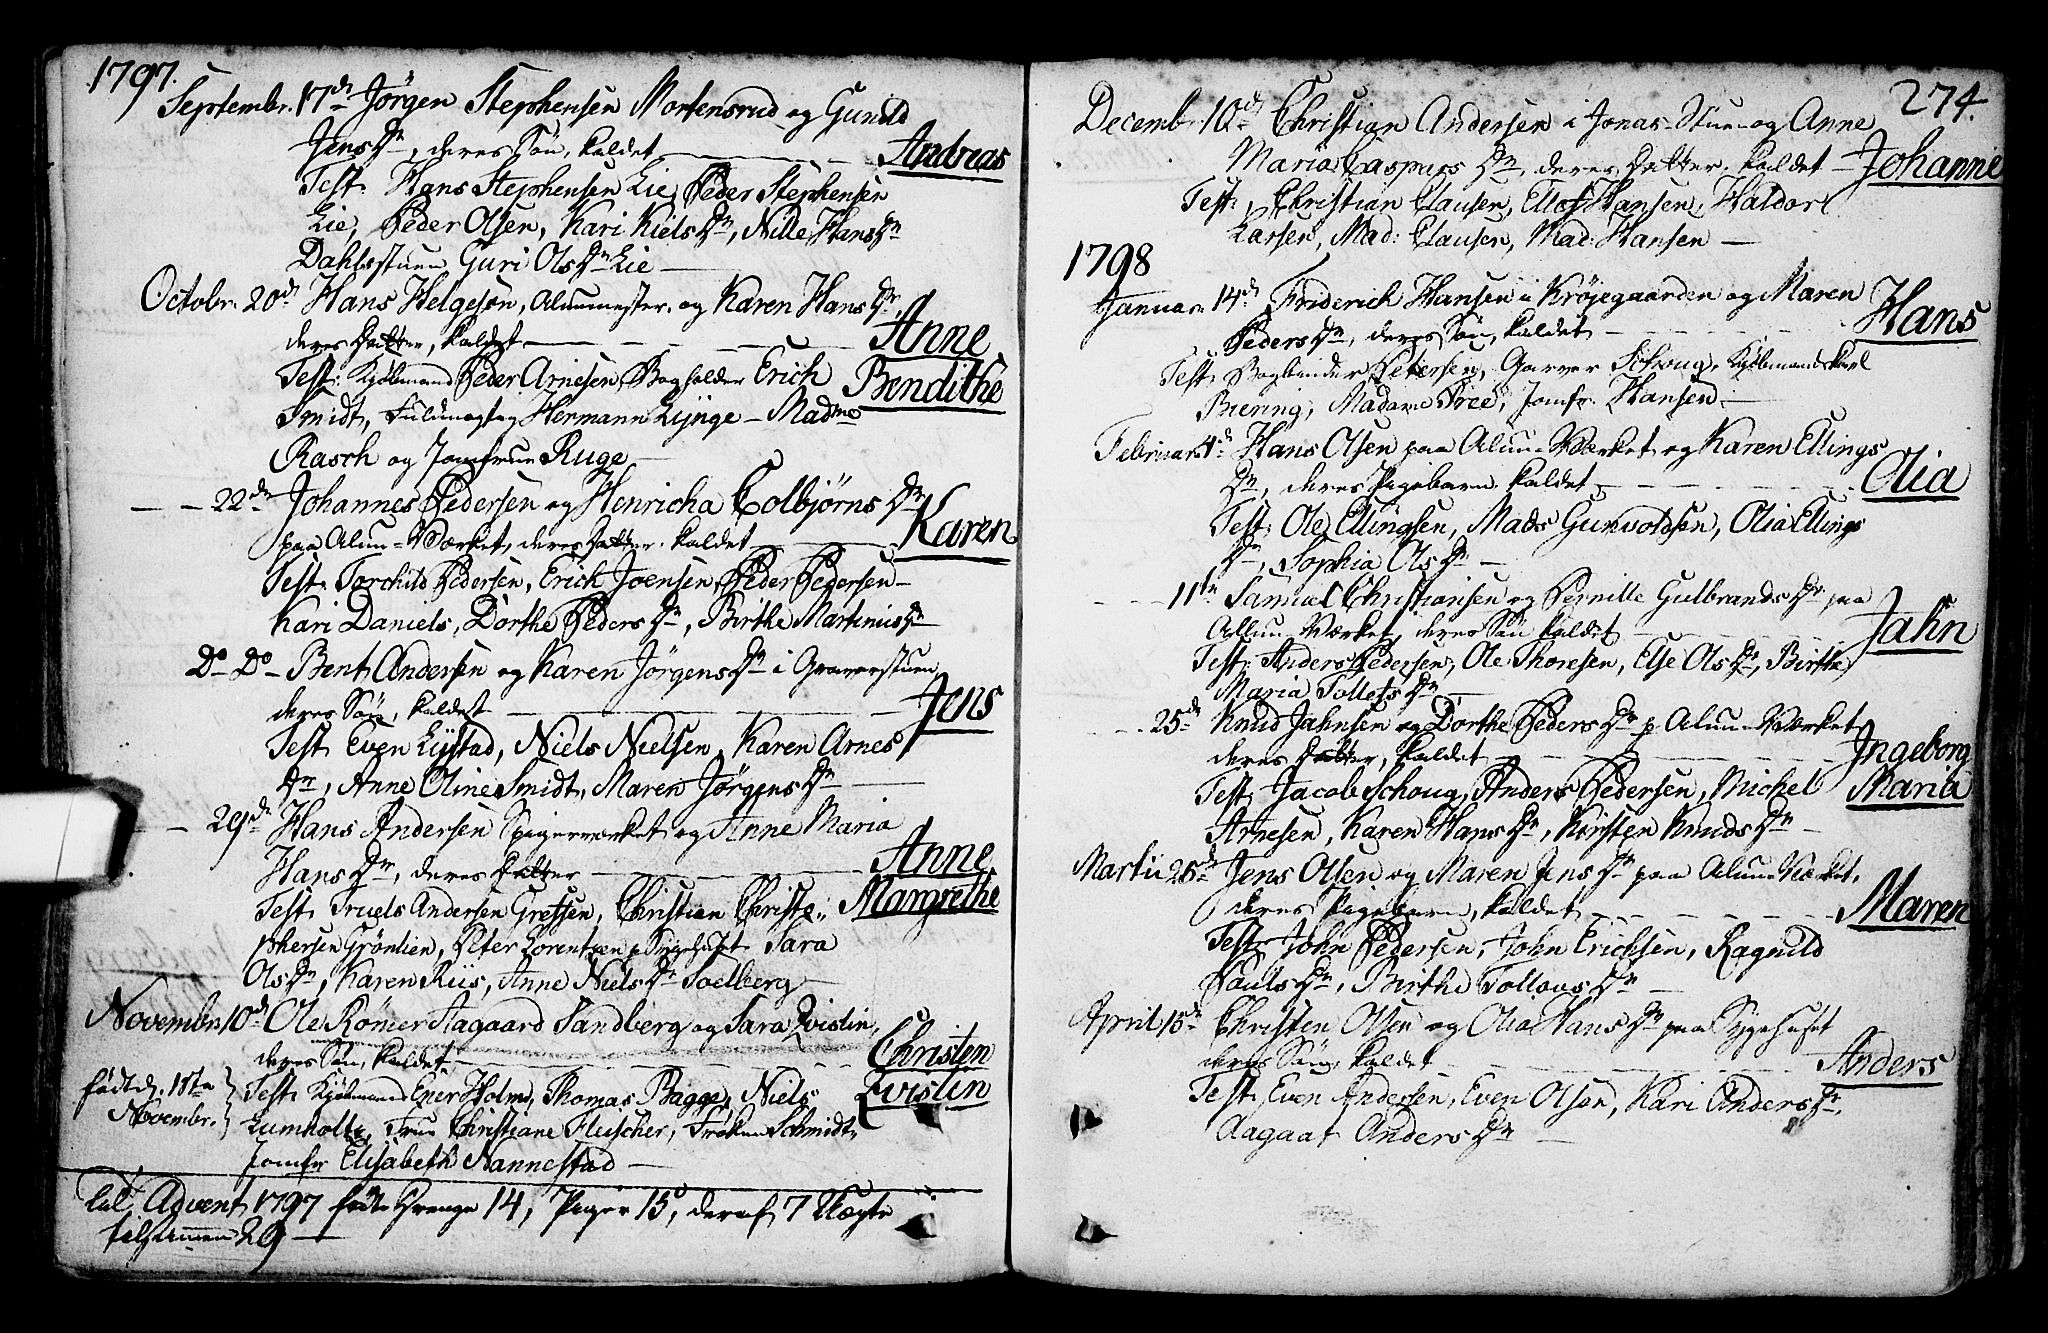 1797.
Septembr. 17de Jörgen Stephensen Mortensrud og Gunild
Jens Dr, deres Sön, kaldet — Andreas
Test: Hans Stephensen Lie, Peder Stephensen
Lie, Peder Olsen, Kari Kiels Dr, Nille Hans Dr
Dahlsstuen Guri Ols Dr Lie —
Octobr. 20de Hans Helgesön, Alunmester og Karen Hans Dr,
deres Datter, kaldet — Anne
Test: Kjöbmand Peder Arnesen, Bogholder Erich Bendithe
Smidt, Fuldmægtig Hermann Lynge — Madme
Rasch og Jomfrue Ruge —
— — 22de Johannes Pedersen og Henricha Colbjörns Dr
paa Alun-Værket, deres Datter, kaldet — Karen
Test: Torchild Pedersen, Erich Joensen, Peder Pedersen —
Kari Daniels, Dorthe Peders Dr, Birthe Martinius Dr
Do Do — Bent Andersen og Karen Jörgens Dr i Graverstuen,
deres Sön, kaldet — Jens
Test: Even Lystad, Niels Nielsen, Karen Arnes
Dr, Anne Oline Smidt, Maren Jörgens Dr —
— 29de Hans Andersen Spigerværket og Anne Maria
Hans Dr, deres Datter — Anne
Test: Truels Andersen Gretsen, Christian Christo- Margrethe
phersen Grönlien, Peter Lorentzen p Sygehuset Sara
Ols Dr, Karen Riis, Anne Niels Dr Soelberg —
Novembr. 10de Ole Römer Aagaard Sandberg og Sara Qvistin,
deres Sön, kaldet — Christen
födt d. 18te Test: Kjöbmand Ener Holm, Thomas Bagge, Niels Qvistin
Novembr. Lumholtz, Frue Christiane Fleischer, Fröken Schmidt,
Jomfr Elisabeth Nannestad —
til Advent 1797 födte Drenge 14, Piger 15, deraf 7 Uægte
tilsammen 29 —
274.
Decemb. 10de Christian Andersen i Jonas-Stuen og Anne
Maria Caspars Dr, deres Datter, kaldet — Johanne
Test: Christian Clausen, Ellof Hansen, Haldor
Larsen, Mad: Clausen, Mad: Hansen —
1798
Januar. 14de Friderich Hansen i Kröjegaarden og Maren
Peders Dr, deres Sön, kaldet — Hans
Test: Bogbinder Petersen, Garver Schoug, Kjöbmandskarl
Biering, Madame Pree, Jomfr: Hansen —
Februar. 4de Hans Olsen paa Alun-Værket og Karen Ellings
Dr, deres Pigebarn kaldet — Olia
Test: Ole Ellingsen, Mads Gunvoldsen, Olia Ellings
Dr, Sophia Ols Dr —
— — 11te Samuel Christiansen og Pernille Gulbrands Dr paa
Allun-Værket, deres Sön kaldet — Jahn
Test: Anders Pedersen, Ole Thoresen, Else Ols Dr, Birthe
Maria Tollefs Dr —
— — 25de Knud Jahnsen og Dorthe Peders Dr p Alun-Værket
deres Datter, kaldet — Ingeborg
Test: Jacob Schoug, Anders Pedersen, Michel Maria
Arnesen, Karen Hans Dr, Kirsten Knuds Dr —
Martii 25de Jens Olsen og Maren Jens Dr paa Alun-Værket,
deres Pigebarn, kaldet — Maren
Test: John Pedersen, John Erichsen, Ragnild
Pauls Dr, Birthe Tollovs Dr —
April 15de Christen Olsen og Olia Hans Dr paa Sygehuset
deres Sön, kaldet — Anders
Test: Even Andersen, Even Olsen, Kari Anders Dr,
Aagaat Anders Dr —